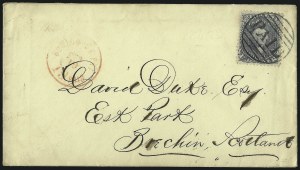 David Duke Esq
Esk Park
Brechin, Scotland